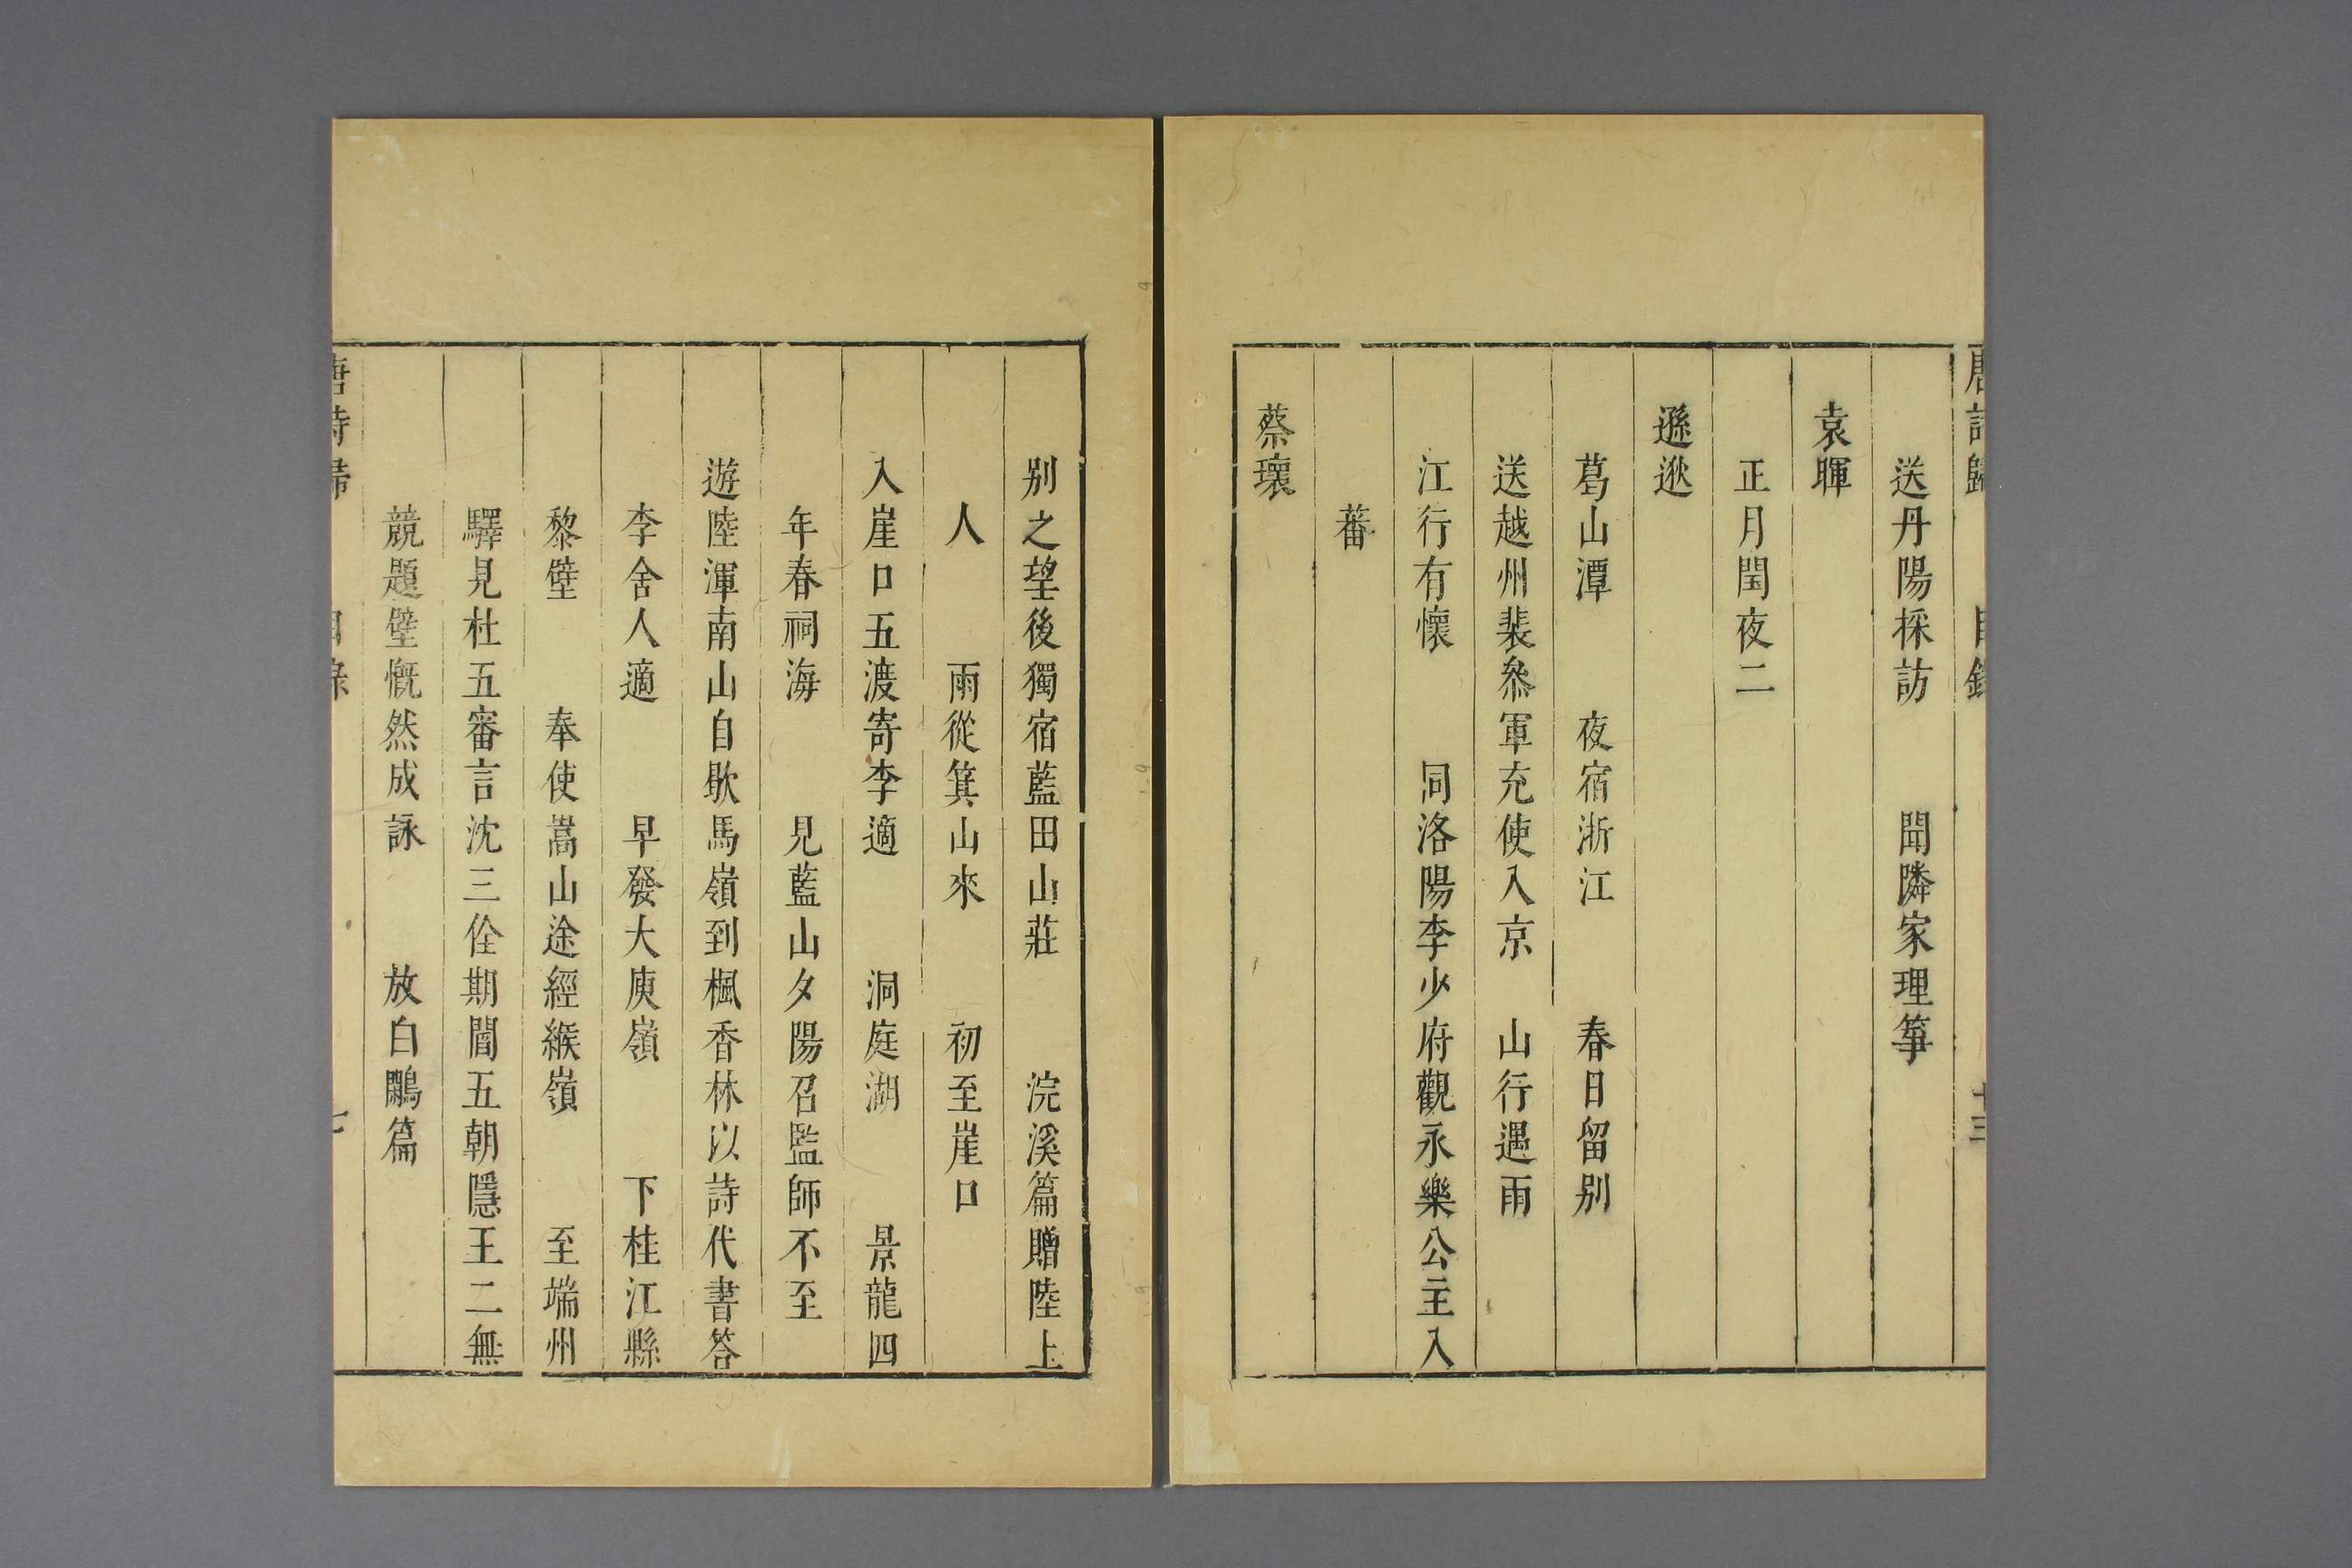 唐詩歸 目錄 十三
送丹陽採訪 聞隣家理箏
袁暉
正月閨夜二
遜逖
葛山潭 夜宿浙江 春日留別
送越州裴叅軍充使入京 山行遇雨
江行有懷 同洛陽李少府觀永樂公主入
蕃
蔡瓌
別之望後獨宿藍田山莊 浣溪篇贈陸上
人 雨從箕山來 初至崖口
入崖口五渡寄李適 洞庭湖 景龍四
年春祠海 見藍山夕陽召監師不至
遊陸渾南山自歇馬嶺到楓香林以詩代書答
李舍人適 早發大庾嶺 下桂江縣
黎壁 奉使嵩山途經緱嶺 至端州
驛見杜五審言沈三佺期閻五朝隱王二無
競題壁慨然成詠 放白鷴篇
唐詩歸 目錄 七